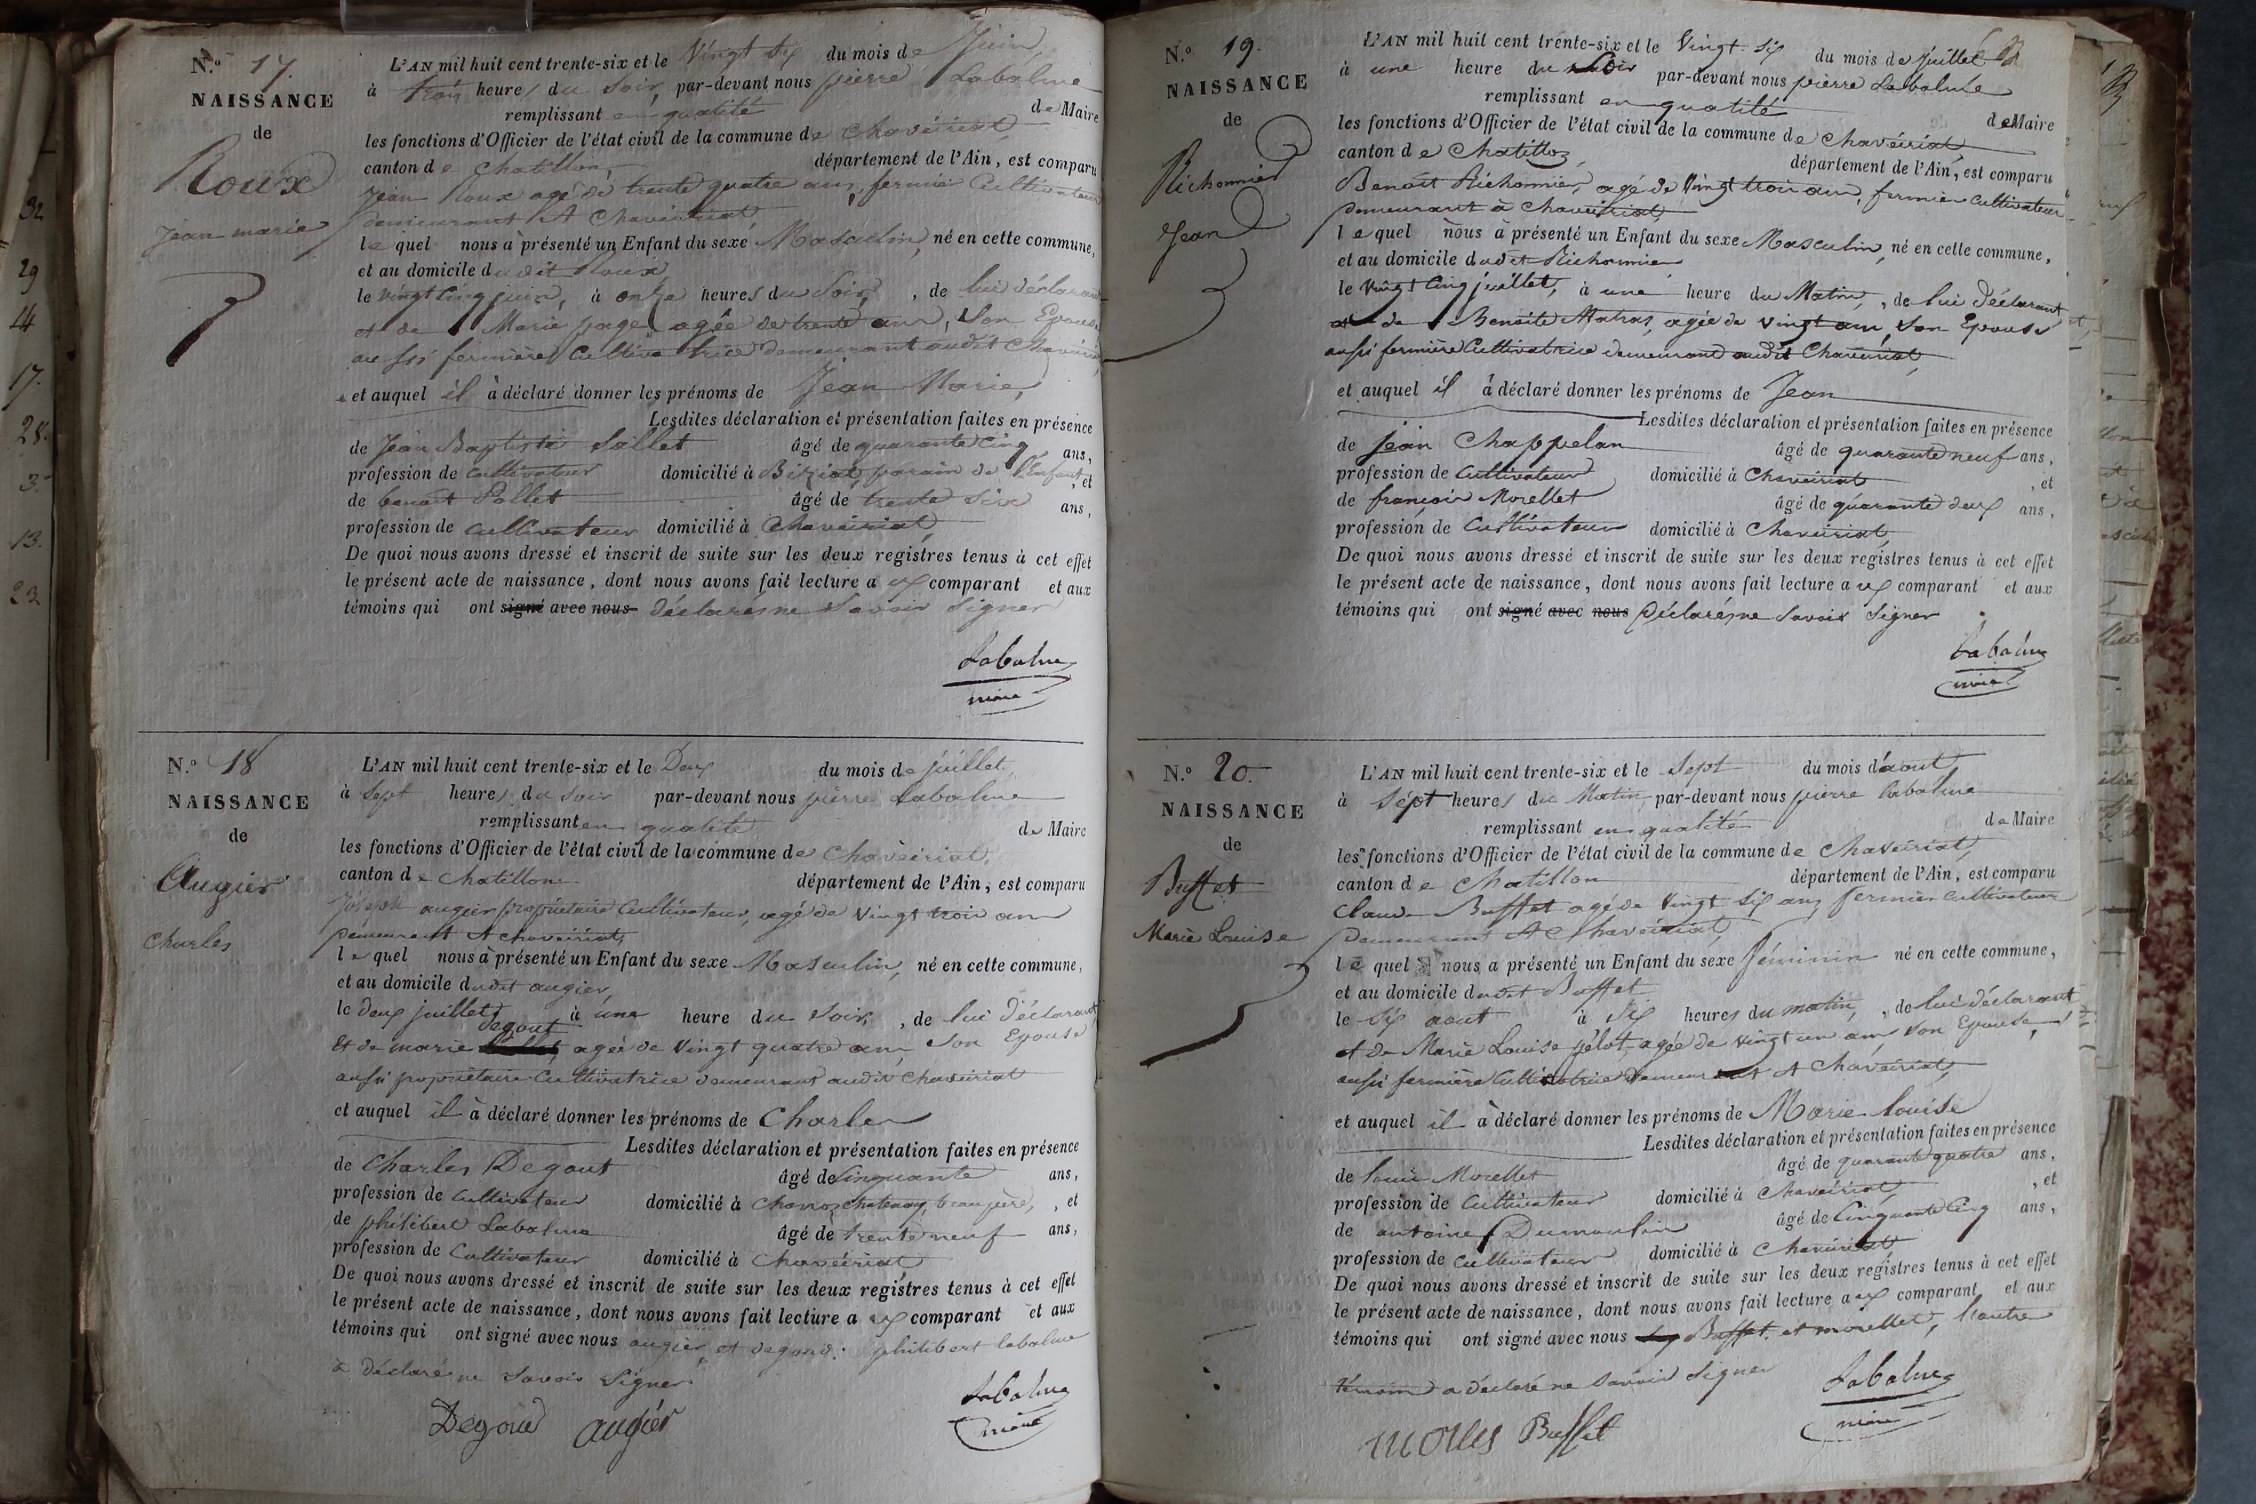 32
29
14
17.
28.
3.
13.
23
N.o 17.
NAISSANCE
de
Roux
jean marie
L'AN mil huit cent trente-six et le Vingt Six du mois de Juin,
à trois heures du soir, par-devant nous pierre Labalme
remplissant en qualité de Maire
les fonctions d'Officier de l'état civil de la commune de Chavéiriat
canton de Chatillon, département de l'Ain, est comparu
Jean Roux agé de trente quatre ans, fermier Cultivateur
demeurant A Chavéiriat
le quel nous à présenté un Enfant du sexe Masculin, né en cette commune,
et au domicile dudit Roux,
le vingt Cinq juin, à onze heures du Soir, de lui déclarant
et de Marie page, agée de trente ans, Son Epouse
aussi fermière Cultivatrice demeurant audit Chavéiriat
et auquel il à déclaré donner les prénoms de Jean Marie,
Lesdites déclaration et présentation faites en présence
de Jean Baptiste Sallet âgé de quarante Cinq ans,
profession de Cultivateur domicilié à Biziat, parain de l'Enfant, et
de benoît Pollet âgé de trente Six ans,
profession de Cultivateur domicilié à Chavéiriat,
De quoi nous avons dressé et inscrit de suite sur les deux registres tenus à cet effet
le présent acte de naissance, dont nous avons fait lecture a ux comparant et aux
témoins qui ont signé avec nous déclarés ne Savoir Signer
Labalme
maire
N.o 18
NAISSANCE
de
Augier
Charles
L'AN mil huit cent trente-six et le Deux du mois de juillet,
à Sept heures du soir par-devant nous pierre Labalme
remplissant en qualité de Maire
les fonctions d'Officier de l'état civil de la commune de Chavéiriat,
canton de Chatillon département de l'Ain, est comparu
Joseph augier propriétaire Cultivateur, agé de Vingt trois ans
Demeurant A chavéiriat,
le quel nous à présenté un Enfant du sexe Masculin, né en cette commune,
et au domicile dudit augier,
le deux juillet, à une heure du Soir, de lui déclarant
degout
Et de marie agée de Vingt quatre ans, Son Epouse
aussi propriétaire Cultivatrice demeurant audit Chavéiriat
et auquel il à déclaré donner les prénoms de Charles
Lesdites déclaration et présentation faites en présence
de Charles Degout âgé de Cinquante ans,
profession de Cultivateur domicilié à Chanoz chatenay, , et
de philibert Labalme âgé de trente neuf ans,
profession de Cultivateur domicilié à Chavéiriat
De quoi nous avons dressé et inscrit de suite sur les deux registres tenus à cet effet
le présent acte de naissance, dont nous avons fait lecture a ux comparant et aux
témoins qui ont signé avec nous augier et degoud: philibert labalme
a déclaré ne Savoir Signer
Degoud augiér Labalme
maire
N.o 19.
NAISSANCE
de
Richonnier
Jean
L'AN mil huit cent trente-six et le Vingt-Six du mois de juillet
à une heure du Soir par-devant nous pierre Labalme
remplissant en qualité de Maire
les fonctions d'Officier de l'état civil de la commune de Chavéiriat,
canton de Chatillon, département de l'Ain, est comparu
Benoît Richonnier, agé de Vingt trois ans, fermier Cultivateur
Demeurant à Chavéiriat,
le quel nous à présenté un Enfant du sexe Masculin, né en cette commune,
et au domicile dudit Richonnier
le Vingt Cinq juillet, à une heure du Matin, de lui déclarant
et de Benoîte Matras, agée de Vingt ans Son Epouse
aussi fermière Cultivatrice demeurant audit Chavéiriat,
et auquel il à déclaré donner les prénoms de Jean
Lesdites déclaration et présentation faites en présence
de jean Chappelan âgé de quarante neuf ans,
profession de Cultivateur domicilié à Chavéiriat , et
de françois Morellet âgé de quarante deux ans,
profession de Cultivateur domicilié à Chavéiriat,
De quoi nous avons dressé et inscrit de suite sur les deux registres tenus à cet effet
le présent acte de naissance, dont nous avons fait lecture a ux comparant et aux
témoins qui ont signé avec nous Déclarés ne Savoir Signer
Labalme
maire
N.o 20.
NAISSANCE
de
Buffet
Marie Louise
L'AN mil huit cent trente-six et le Sept du mois d'aout,
à Sept heures du Matin, par-devant nous pierre labalme
remplissant en qualité de Maire
les fonctions d'Officier de l'état civil de la commune de Chavéiriat,
canton de Chatillon département de l'Ain, est comparu
Claude Buffet agé de Vingt Six ans fermier Cultivateur
Demeurant A Chavéiriat,
le quel nous a présenté un Enfant du sexe féminin né en cette commune,
et au domicile dudit Buffet
le Six aout à Six heures du matin, de lui déclarant
et de Marie Louise pélot, agée de vingt un ans, Son Epouse,
aussi fermière Cultivatrice Demeurant A Chavéiriat,
et auquel il à déclaré donner les prénoms de Marie Louise
Lesdites déclaration et présentation faites en présence
de louis Morellet âgé de quarante quatre ans,
profession de Cultivateur domicilié à Chavéiriat, , et
de antoine Dumoulin âgé de Cinquante Cinq ans,
profession de Cultivateur domicilié à Chavéiriat
De quoi nous avons dressé et inscrit de suite sur les deux registres tenus à cet effet
le présent acte de naissance, dont nous avons fait lecture a ux comparant et aux
témoins qui ont signé avec nous Buffet et morellet, l'autre
témoin a déclaré ne Savoir Signer
Labalme
maire
Buffet